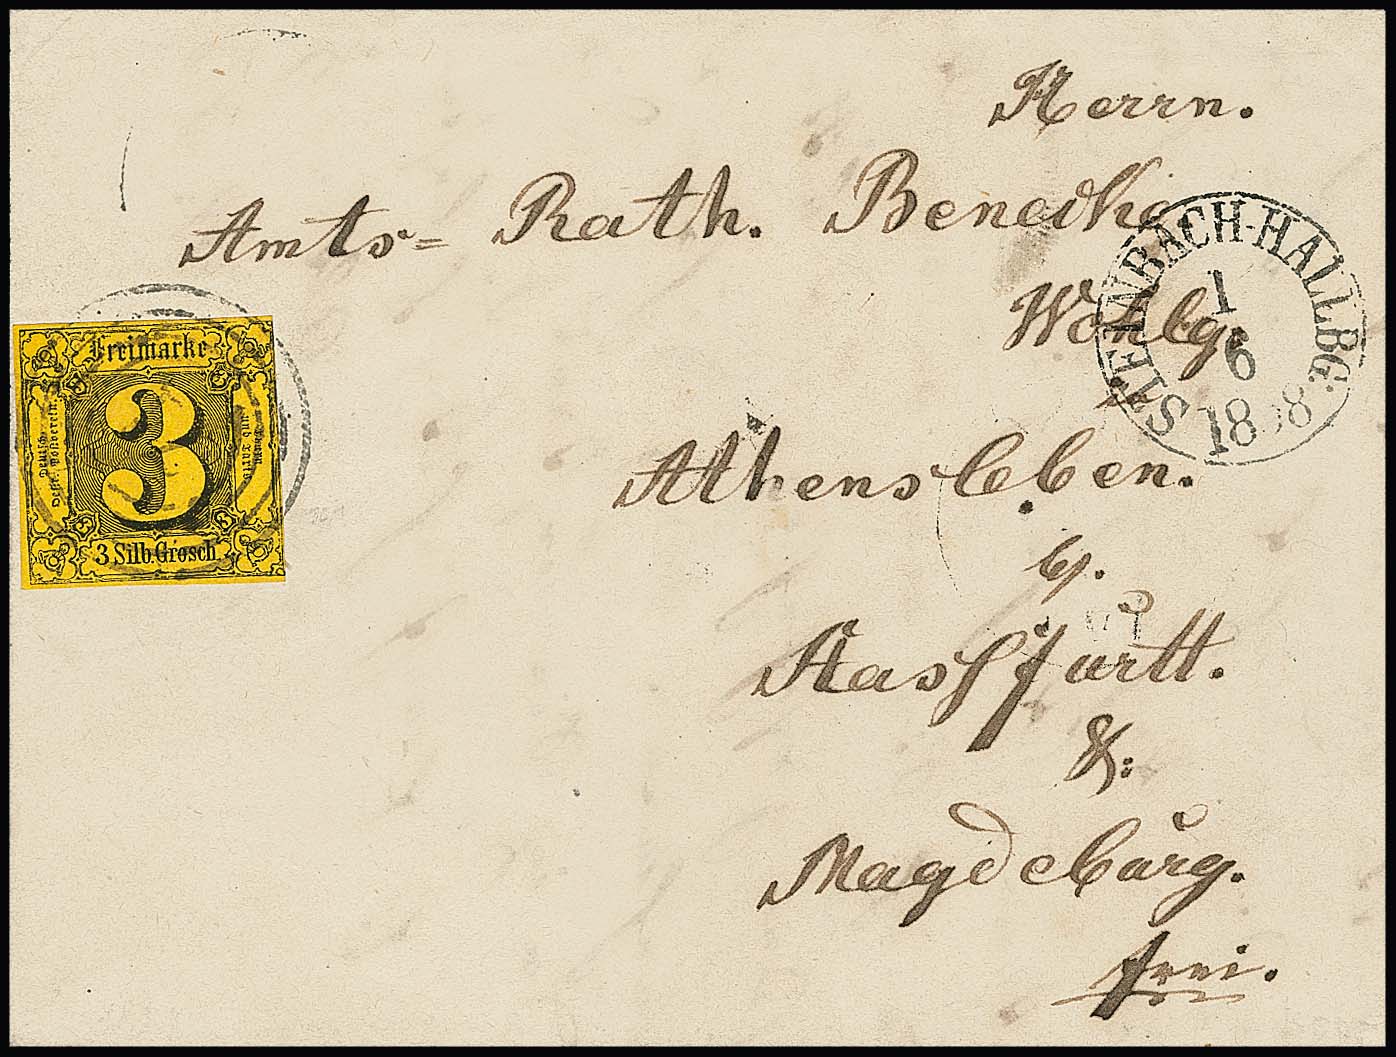 Herrn.
Amts= Rath. Benecke
Wohlg.
Athensleben.
b/.
Stassfurtt.
&:
Magdeburg.
frei.
STEINBACH-HALLBG:
1
6
1858
Freimarke
Deutsch-
Oestr. Postverein.
3
Thurn
und Taxis
3 Silb.Grosch.